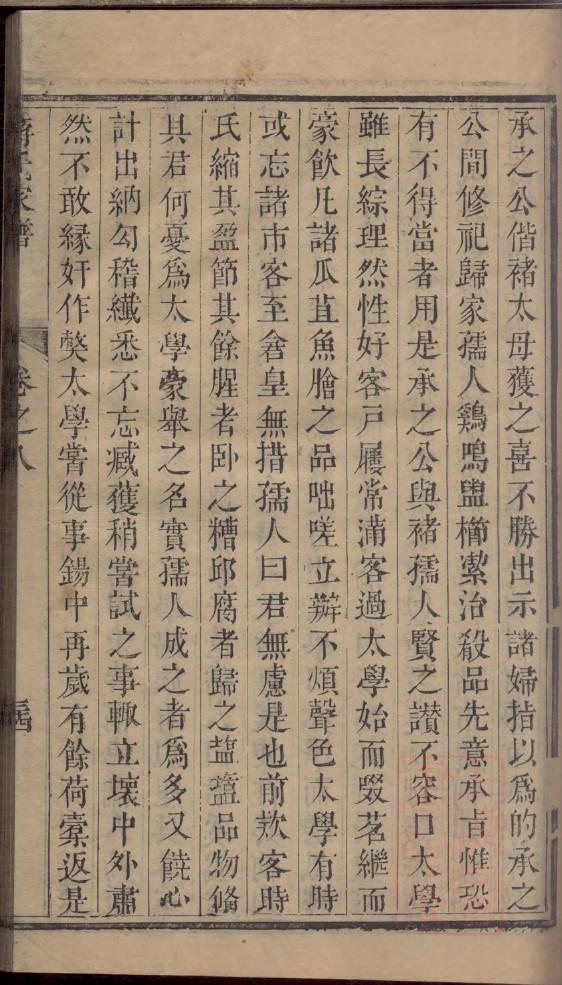 承之公偕褚太母獲之喜不勝出示諸婦指以爲的承之
公間修祀歸家孺人鷄鳴盥櫛潔治殽品先意承旨惟恐
有不得當者用是承之公與褚孺人賢之讃不容口太學
雖長綜理然性好客戸屨常滿客過太學始而啜茗繼而
豪飲凡諸瓜苴魚膾之品咄嗟立辦不煩聲色太學有時
或忘諸市客至倉皇無措孺人曰君無慮是也前欵客時
氏縮其盈節其餘腥者卧之糟邱腐者歸之盐䀋品物偹
具君何憂爲太學豪舉之名實孺人成之者爲多又饒心
計出納勾稽纖悉不忘臧獲稍嘗試之事輙立壊中外肅
然不敢緣奸作獘太學嘗從事錫中再歲有餘荷橐返是
蔣氏家譜
卷之八